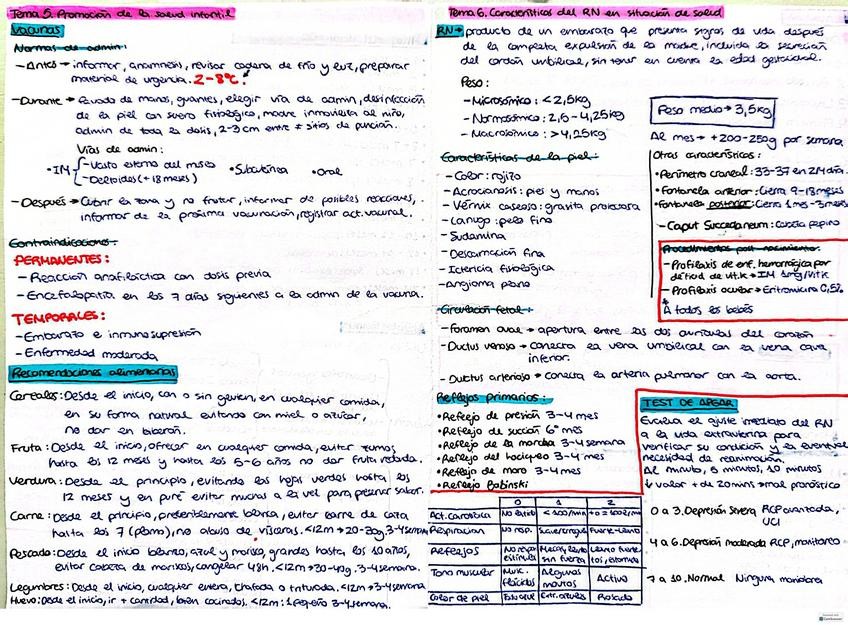 Tema 5. Promoción de la salud infantil
Vacunas
Normas de admin:
- Antes → informar, anamnesis, revisar cadena de frío y luz, preparar
material de urgencia. 2-8ºC!
- Durante → lavado de manos, guantes, elegir vía de admin, desinfección
de la piel con suero fisiológico, madre inmoviliza al niño,
admin de toda la dosis, 2-3 cm entre ≠ sitios de punción.
Vías de admin:
• IM - Vasto externo del muslo
- Deltoides (+18 meses)
• Subcutánea
• Oral
- Después → Cubrir la zona y no frotar, informar de posibles reacciones,
informar de la próxima vacunación, registrar act. vacunal.
Contraindicaciones:
PERMANENTES:
- Reacción anafiláctica con dosis previa
- Encefalopatía en los 7 días siguientes a la admin de la vacuna.
TEMPORALES:
- Embarazo e inmunosupresión
- Enfermedad moderada
Recomendaciones alimentarias
Cereales: Desde el inicio, con o sin gluten, en cualquier comida,
en su forma natural evitando con miel o azúcar,
no dar en biberón.
Fruta: Desde el inicio, ofrecer en cualquier comida, evitar zumos
hasta los 12 meses y hasta los 5-6 años no dar fruta redonda.
Verdura: Desde el principio, evitando las hojas verdes hasta los
12 meses y en puré evitar muchas a la vez para presenar sabor.
Carne: Desde el principio, preferiblemente blanca, evitar carne de caza
hasta los 7 (plomo), no abuso de vísceras. <12m → 20-30g, 3-4 semana
Pescado: Desde el inicio blanco, azul y marisco, grandes hasta los 10 años,
evitar cabeza de mariscos, congelar 48h. <12m → 30-40g. 3-4 semana.
Legumbres: Desde el inicio, cualquier entera, chafada o triturada. <12m → 3-4 semana
Huevo: Desde el inicio, ir + cantidad, bien cocinados. <12m: 1 pequeño 3-4 semana.
Tema 6. Características del RN en situación de salud
RN → producto de un embarazo que presenta signos de vida después
de la completa expulsión de la madre, incluida la sección
del cordón umbilical, sin tener en cuenta la edad gestacional.
Peso:
- Microsómico: < 2,5kg
- Normosómico: 2,6 - 4,25kg
- Macrosómico: > 4,25kg
Peso medio → 3,5kg
Al mes → +200-250g por semana
Características de la piel:
- Color: rojizo
- Acrocianosis: pies y manos
- Vérnix caseoso: grasita protectora
- Lanugo: pelo fino
- Sudamina
- Descamación fina
- Ictericia fisiológica
- Angioma plano
Otras características:
• Perímetro craneal: 33-37 en
• Fontanela anterior: Cierra 9-18 meses
• Fontanela posterior: Cierra 1 mes - 3 meses
- Caput Succedaneum: cabeza pepino
Procedimientos post-nacimiento:
- Profilaxis de enf. hemorrágica por
déficit de vit. K → IM 1mg/Vit K
- Profilaxis ocular → Eritromicina 0,5%
* A todos los bebés
Circulación fetal:
- Foramen oval → apertura entre las dos aurículas del corazón
- Ductus venoso → conecta la vena umbilical con la vena cava
inferior.
- Ductus arterioso → conecta la arteria pulmonar con la aorta.
Reflejos primarios:
• Reflejo de presión 3-4 mes
• Reflejo de succión 6º mes
• Reflejo de la marcha 3-4 semana
• Reflejo del hociqueo 3-4 mes
• Reflejo de moro 3-4 mes
• Reflejo Babinski
TEST DE APGAR
Evalua el ajuste inmediato del RN
a la vida extrauterina para
verificar su condición y la eventual
necesidad de reanimación.
Al minuto, 5 minutos, 10 minutos
↓ valor + de 20 mins → mal pronóstico
0 a 3. Depresión severa RCP avanzada,
UCI
4 a 6. Depresión moderada RCP, monitoreo
7 a 10. Normal Ninguna maniobra
0 1 2
Act. cardíaca No latido <100/min + o = 100/min
Respiración No resp. Fuerte-llanto
Reflejos No resp. estímulo Muecas, llanto sin fuerza Llanto fuerte, tos, estornudo
Tono muscular Musc. flácidos Algunos movtos Activo
Color de piel Ext. azules Rosado
CamScanner